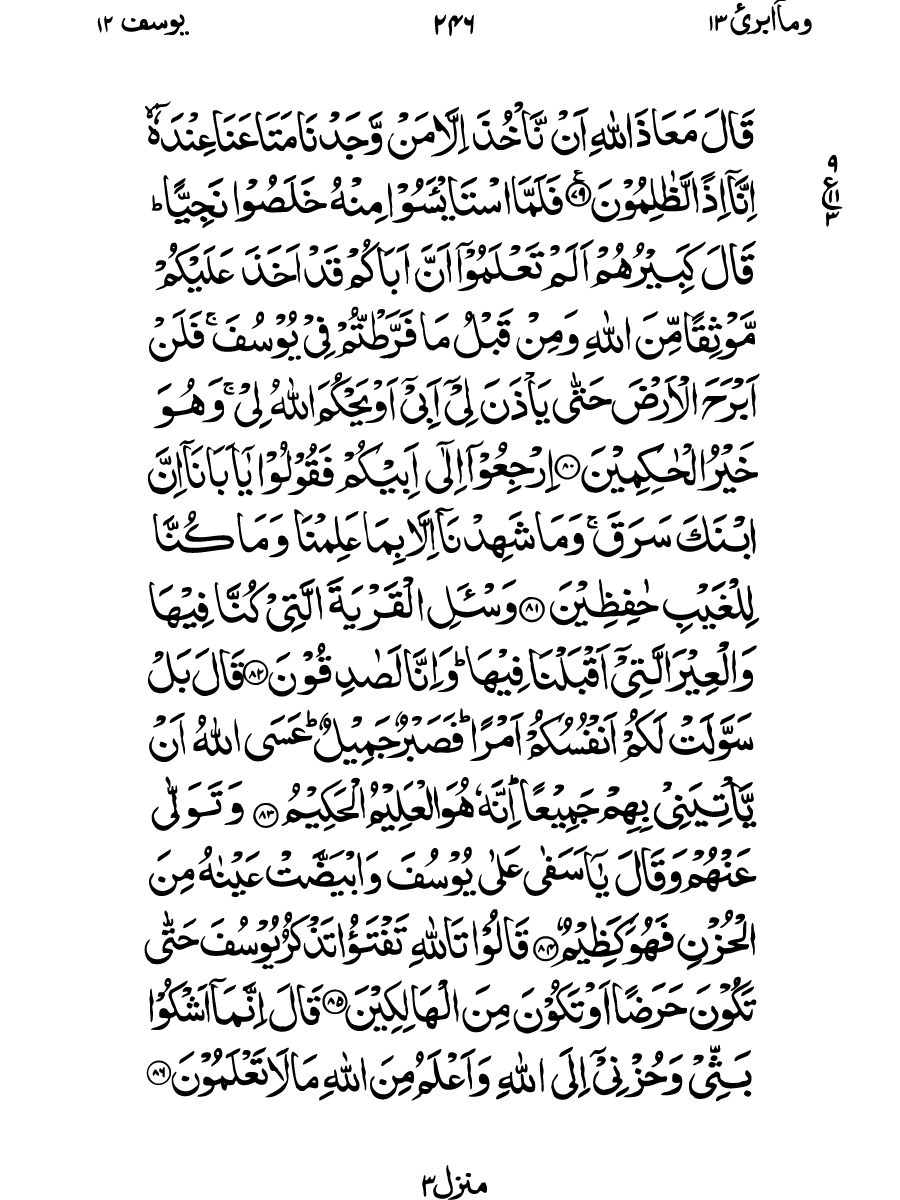 وماۤابرئ ١٣
٢٤٦
يوسف ١٢
قَالَ مَعَاذَ اللّٰهِ اَنْ نَّاْخُذَ اِلَّا مَنْ وَّجَدْنَا مَتَاعَنَا عِنْدَهٗۤ ۙ
٩
ع
١١
٣
اِنَّاۤ اِذًا لَّظٰلِمُوْنَ ﴿٧٩﴾ ع فَلَمَّا اسْتَايْـَٔسُوْا مِنْهُ خَلَصُوْا نَجِيًّا ؕ
قَالَ كَبِيْرُهُمْ اَلَمْ تَعْلَمُوْۤا اَنَّ اَبَاكُمْ قَدْ اَخَذَ عَلَيْكُمْ
مَّوْثِقًا مِّنَ اللّٰهِ وَمِنْ قَبْلُ مَا فَرَّطْتُّمْ فِيْ يُوْسُفَ ۚ فَلَنْ
اَبْرَحَ الْاَرْضَ حَتّٰى يَاْذَنَ لِيْۤ اَبِيْۤ اَوْ يَحْكُمَ اللّٰهُ لِيْ ۚ وَهُوَ
خَيْرُ الْحٰكِمِيْنَ ﴿٨٠﴾ اِرْجِعُوْۤا اِلٰۤى اَبِيْكُمْ فَقُوْلُوْا يٰۤاَبَانَاۤ اِنَّ
ابْنَكَ سَرَقَ ۚ وَمَا شَهِدْنَاۤ اِلَّا بِمَا عَلِمْنَا وَمَا كُنَّا
لِلْغَيْبِ حٰفِظِيْنَ ﴿٨١﴾ وَسْـَٔلِ الْقَرْيَةَ الَّتِيْ كُنَّا فِيْهَا
وَالْعِيْرَ الَّتِيْۤ اَقْبَلْنَا فِيْهَا ؕ وَاِنَّا لَصٰدِقُوْنَ ﴿٨٢﴾ قَالَ بَلْ
سَوَّلَتْ لَكُمْ اَنْفُسُكُمْ اَمْرًا ؕ فَصَبْرٌ جَمِيْلٌ ؕ عَسَى اللّٰهُ اَنْ
يَّاْتِيَنِيْ بِهِمْ جَمِيْعًا ؕ اِنَّهٗ هُوَ الْعَلِيْمُ الْحَكِيْمُ ﴿٨٣﴾ وَتَوَلّٰى
عَنْهُمْ وَقَالَ يٰۤاَسَفٰى عَلٰى يُوْسُفَ وَابْيَضَّتْ عَيْنٰهُ مِنَ
الْحُزْنِ فَهُوَ كَظِيْمٌ ﴿٨٤﴾ قَالُوْا تَاللّٰهِ تَفْتَؤُا تَذْكُرُ يُوْسُفَ حَتّٰى
تَكُوْنَ حَرَضًا اَوْ تَكُوْنَ مِنَ الْهَالِكِيْنَ ﴿٨٥﴾ قَالَ اِنَّمَاۤ اَشْكُوْا
بَثِّيْ وَحُزْنِيْۤ اِلَى اللّٰهِ وَاَعْلَمُ مِنَ اللّٰهِ مَا لَا تَعْلَمُوْنَ ﴿٨٦﴾
منزل ٣